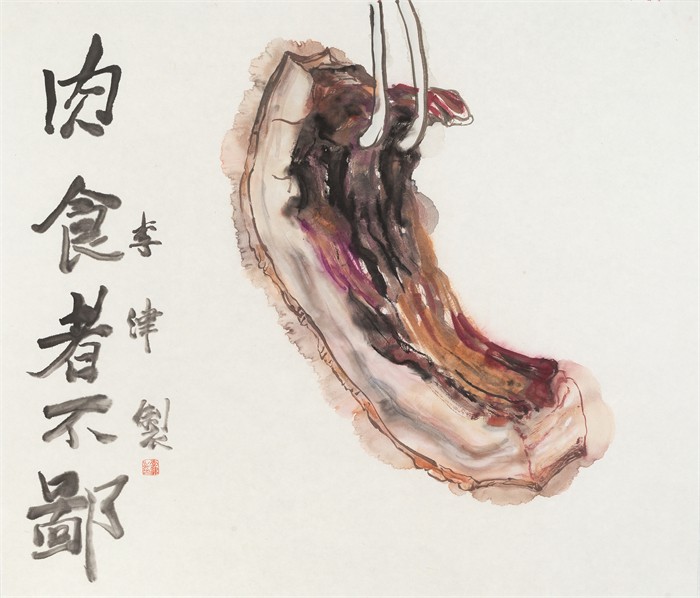 肉食者不鄙
李津製